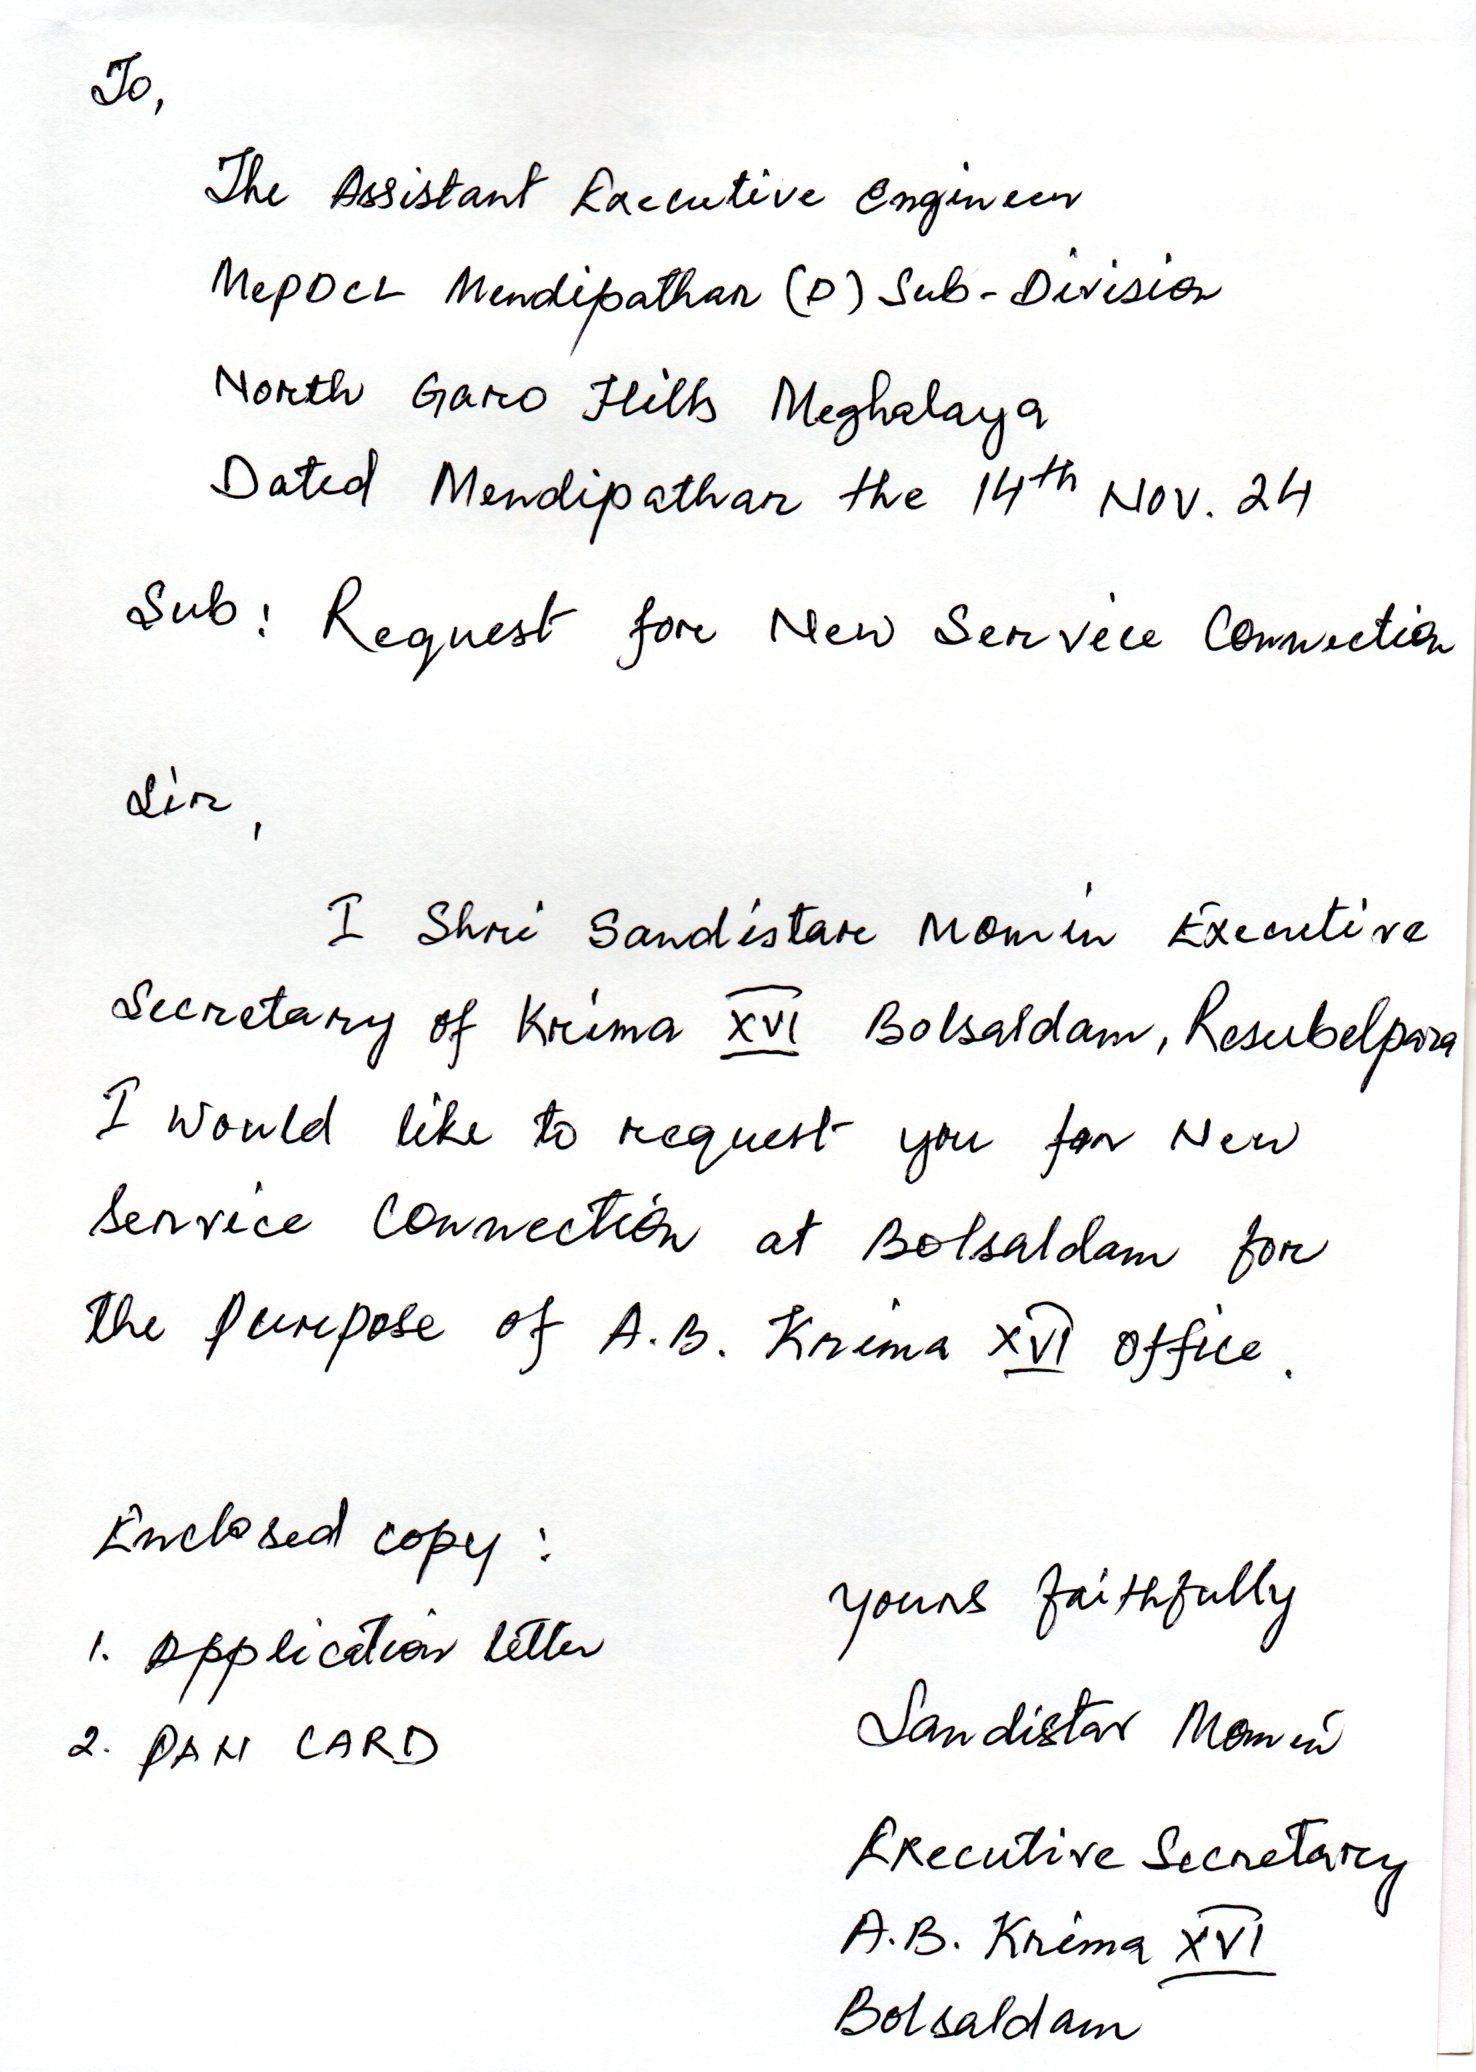 To,
The Assistant Executive Engineer
MePDCL Mendipathar (D) Sub-Division
North Garo Hills Meghalaya
Dated Mendipathar the 14th Nov. 24
Sub: Request for New Service Connection
Sir,
I Shri Sandistar Momin Executive
Secretary of Krima XVI Bolsaldam, Resubelpara
I would like to request you for New
Service Connection at Bolsaldam for
the purpose of A.B. Krima XVI office.
Enclosed copy:
yours faithfully
1. Application letter
Sandistar Momin
2. PAN CARD
Executive Secretary
A.B. Krima XVI
Bolsaldam